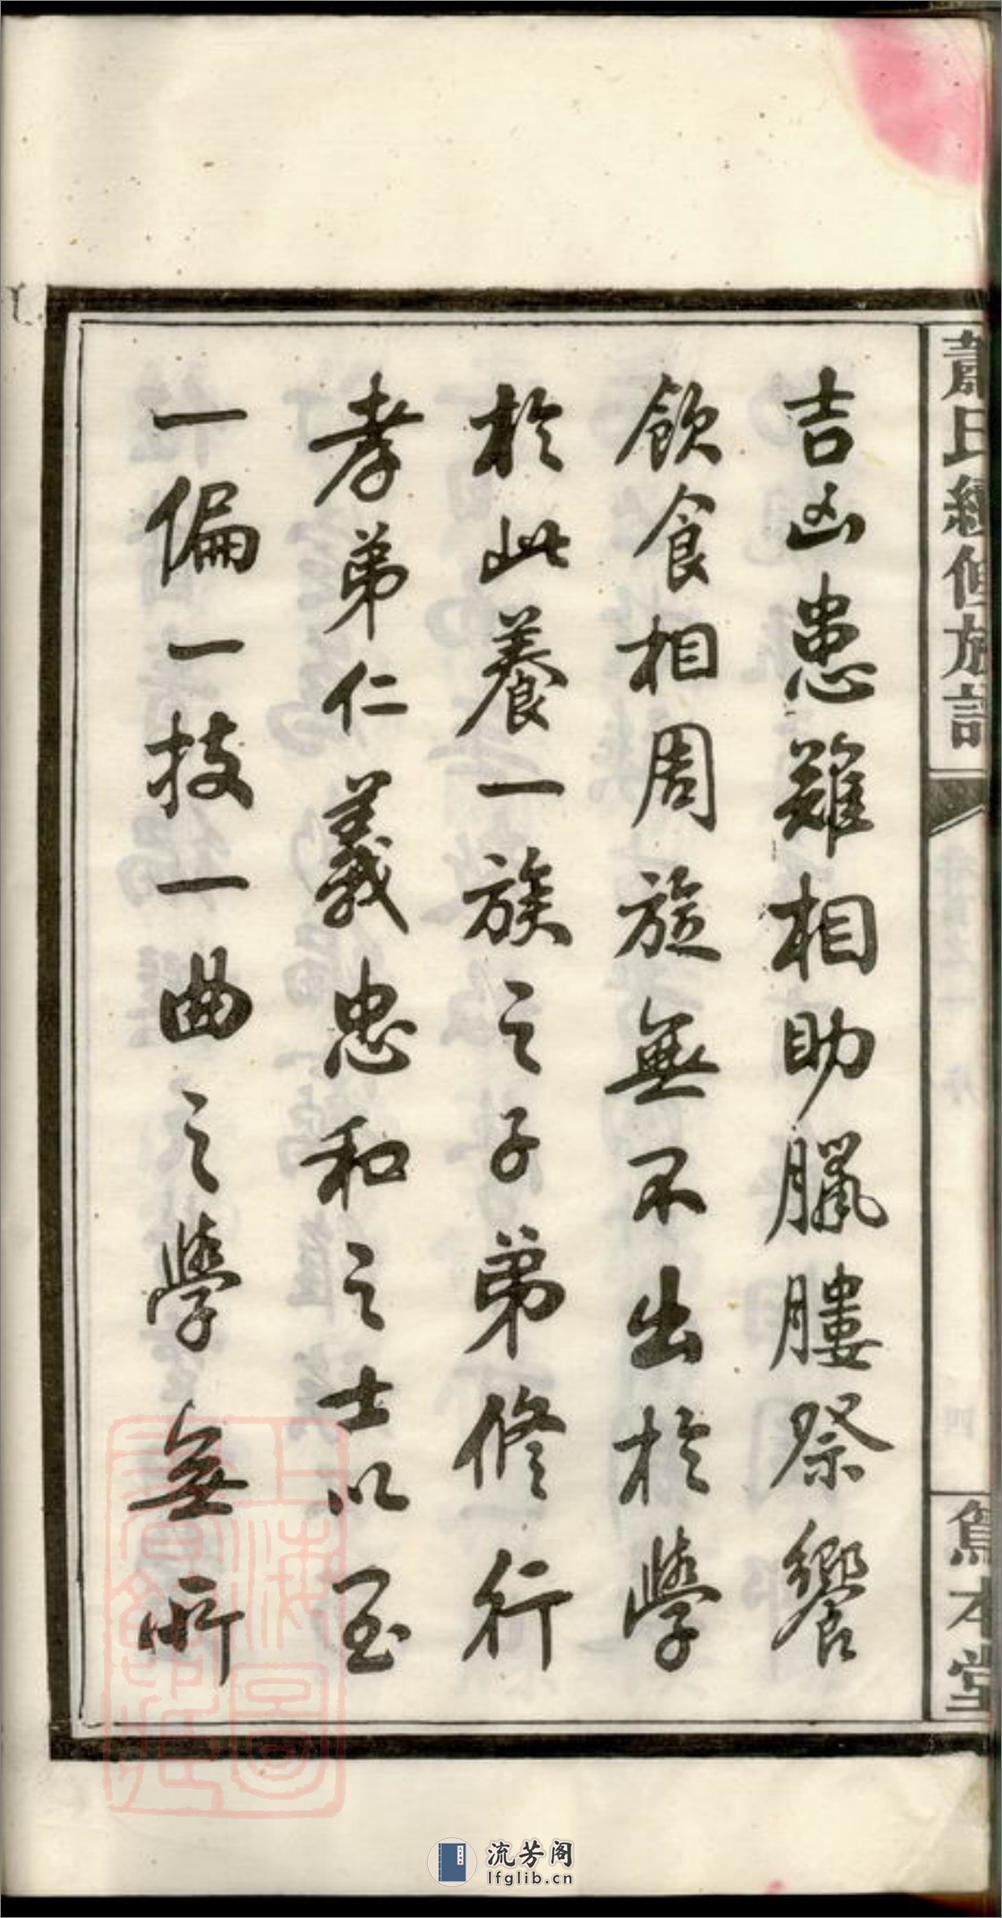 吉凶患難相助臘膢祭饗
飲食相周旋無不出於學
於此養一族之子弟修行
孝弟仁義忠和之士以至
一偏一技一曲之學無所
蕭氏續修族譜
篤本堂
上海圖書館藏
流芳阁
lfglib.cn